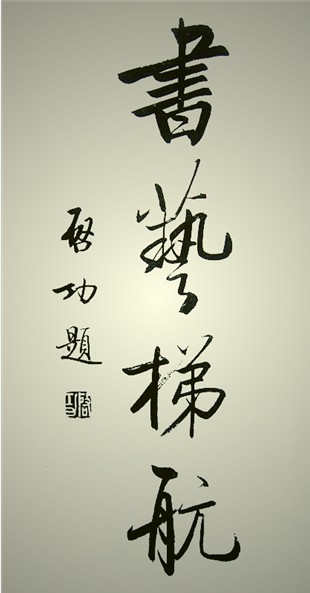 書藝梯航
啓功題